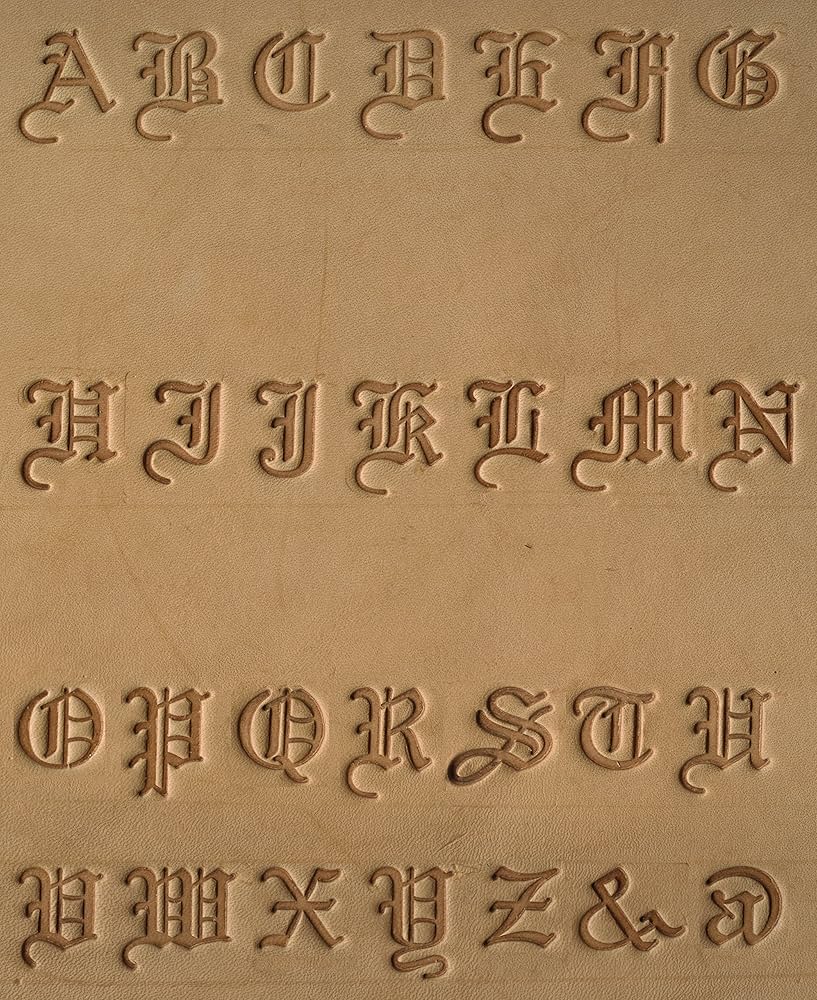 A B C D E F G
H I J K L M N
O P Q R S T U
V W X Y Z & @